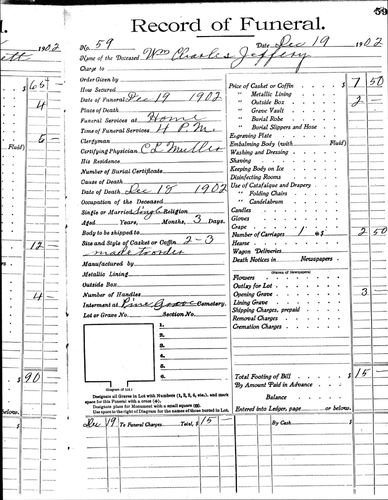 59
Record of Funeral.
1902
No. 59 Date Dec 19 1902
Name of the Deceased Wm Charles Jeffery
Charge to
Order Given by
How Secured
Date of Funeral Dec 19 1902
Place of Death
Funeral Services at Home
Time of Funeral Services 4 P.M.
Clergyman
Certifying Physician C L Muller
His Residence
Number of Burial Certificate
Cause of Death
Date of Death Dec 18 1902
Occupation of the Deceased
Single or Married Single Religion
Aged Years, Months, 3 Days.
Body to be shipped to
Size and Style of Casket or Coffin 2-3
made to order
Manufactured by
Metallic Lining
Outside Box
Number of Handles
Interment at Pine Grove Cemetery.
Lot or Grave No. Section No.
1.
2.
3.
4.
5.
6.
(Diagram of Lot.)
Designate all Graves in Lot with Numbers (1, 2, 3, 4, etc.), and mark
space for this Funeral with a cross (+).
Designate place for Monument with a small square (□).
Use space to the right of Diagram for the names of those buried in Lot.
Dec 19 To Funeral Charges Total, $ 15 —
Price of Casket or Coffin $ 7 50
" Metallic Lining
" Outside Box 2 —
" Grave Vault
" Burial Robe
" Burial Slippers and Hose
Engraving Plate
Embalming Body (with Fluid)
Washing and Dressing
Shaving
Keeping Body on Ice
Disinfecting Rooms
Use of Catafalque and Drapery
" Folding Chairs
" Candelabrum
Candles
Gloves
Crape
Number of Carriages 1 @ $ 2 50
Hearse
Wagon Deliveries
Death Notices in Newspapers
(Names of Newspapers)
Flowers
Outlay for Lot
Opening Grave 3 —
Lining Grave
Shipping Charges, prepaid
Removal Charges
Cremation Charges
Total Footing of Bill $ 15 —
By Amount Paid in Advance
Balance
Entered into Ledger, page or below.
By Cash $
ett 1902
$ 65 —
4
5 —
Fluid)
12 —
4 —
$ 90 —
below.